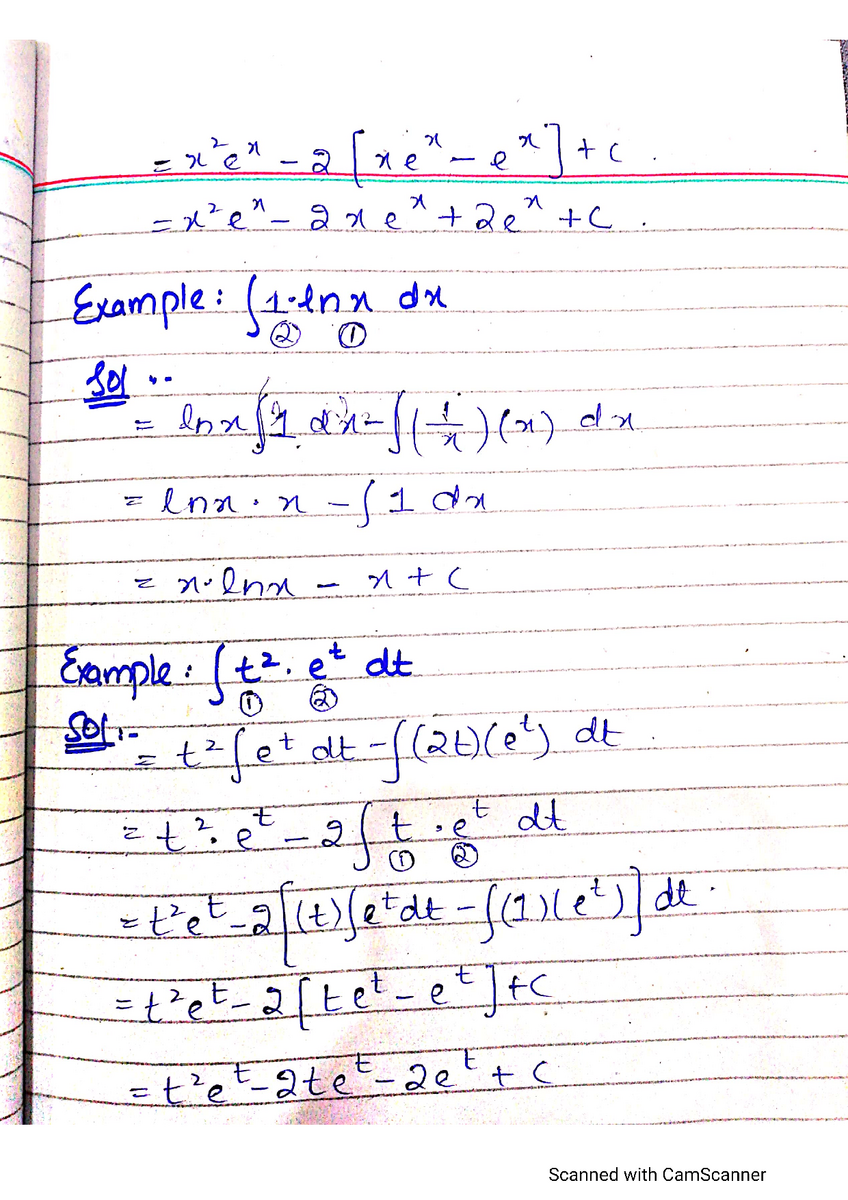 = x²eˣ - 2 [xeˣ - eˣ] + c .
= x²eˣ - 2xeˣ + 2eˣ + c .
Example : ∫ 1·ln x dx
② ①
Sol :-
= ln x ∫ 1 dx - ∫ (1/x)(x) dx
= lnx · x - ∫ 1 dx
= x·lnx - x + c
Example : ∫ t² · eᵗ dt
① ②
Sol :-
= t² ∫ eᵗ dt - ∫ (2t)(eᵗ) dt .
= t² · eᵗ - 2 ∫ t · eᵗ dt
① ②
= t²eᵗ - 2 [(t) ∫ eᵗ dt - ∫ (1)(eᵗ)] dt .
= t²eᵗ - 2 [teᵗ - eᵗ] + c
= t²eᵗ - 2teᵗ - 2eᵗ + c
Scanned with CamScanner